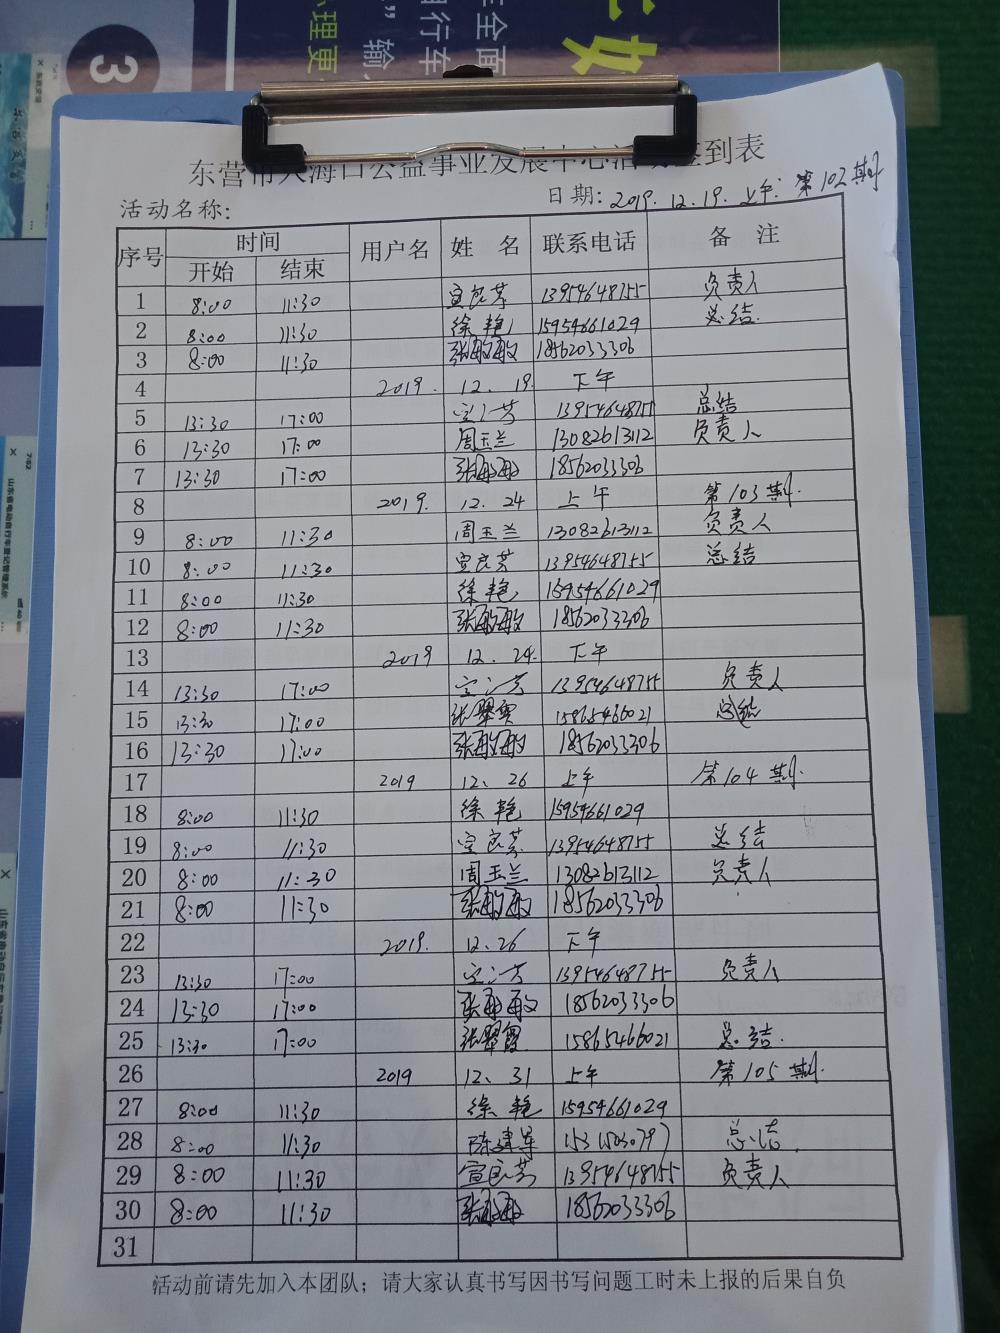 3
理更
" 输
行车
全面
东营市大海口公益事业发展中心活动签到表
活动名称: 日期: 2019. 12. 19. 上午: 第102期
序号 时间 用户名 姓 名 联系电话 备 注
开始 结束
1 8:00 11:30 宣良芳 13954648755 负责人
2 8:00 11:30 徐艳 15954661029 总结.
3 8:00 11:30 张敏敏 18562033306
4 2019. 12. 19. 下午
5 13:30 17:00 13954648755 总结
6 13:30 17:00 周玉兰 13082613112 负责人
7 13:30 17:00 张敏敏 18562033306
8 2019. 12. 24 上午 第103期.
9 8:00 11:30 周玉兰 13082613112 负责人
10 8:00 11:30 宣良芳 13954648755 总结
11 8:00 11:30 徐艳 15954661029
12 8:00 11:30 张敏敏 18562033306
13 2019 12. 24. 下午
14 13:30 17:00 13954648755 负责人
15 13:30 17:00 15865466021 总结
16 13:30 17:00 张敏敏 18562033306
17 2019 12、26 上午 第104期.
18 8:00 11:30 徐艳 15954661029
19 8:00 11:30 宣良芳 13954648755 总结
20 8:00 11:30 周玉兰 13082613112 负责人
21 8:00 11:30 张敏敏 18562033306
22 2019. 12、26 下午
23 13:30 17:00 13954648755 负责人
24 13:30 17:00 张敏敏 18562033306
25 13:30 17:00 15865466021 总结.
26 2019 12、31 上午 第105期.
27 8:00 11:30 徐艳 15954661029
28 8:00 11:30 陈建军 15315030797 总结.
29 8:00 11:30 宣良芳 13954648755 负责人
30 8:00 11:30 张敏敏 18562033306
31
活动前请先加入本团队; 请大家认真书写因书写问题工时未上报的后果自负